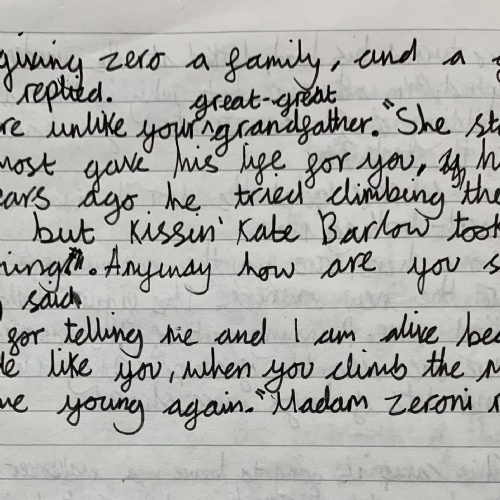 giving zero a family, and a
replied.
great-great
unlike your ^ grandfather." She
gave his life for you,
ago he tried climbing the
but Kissin' Kate Barlow took
. Anyway how are you
said
for telling me and I am alive
like you, when you climb the
young again." Madam Zeroni